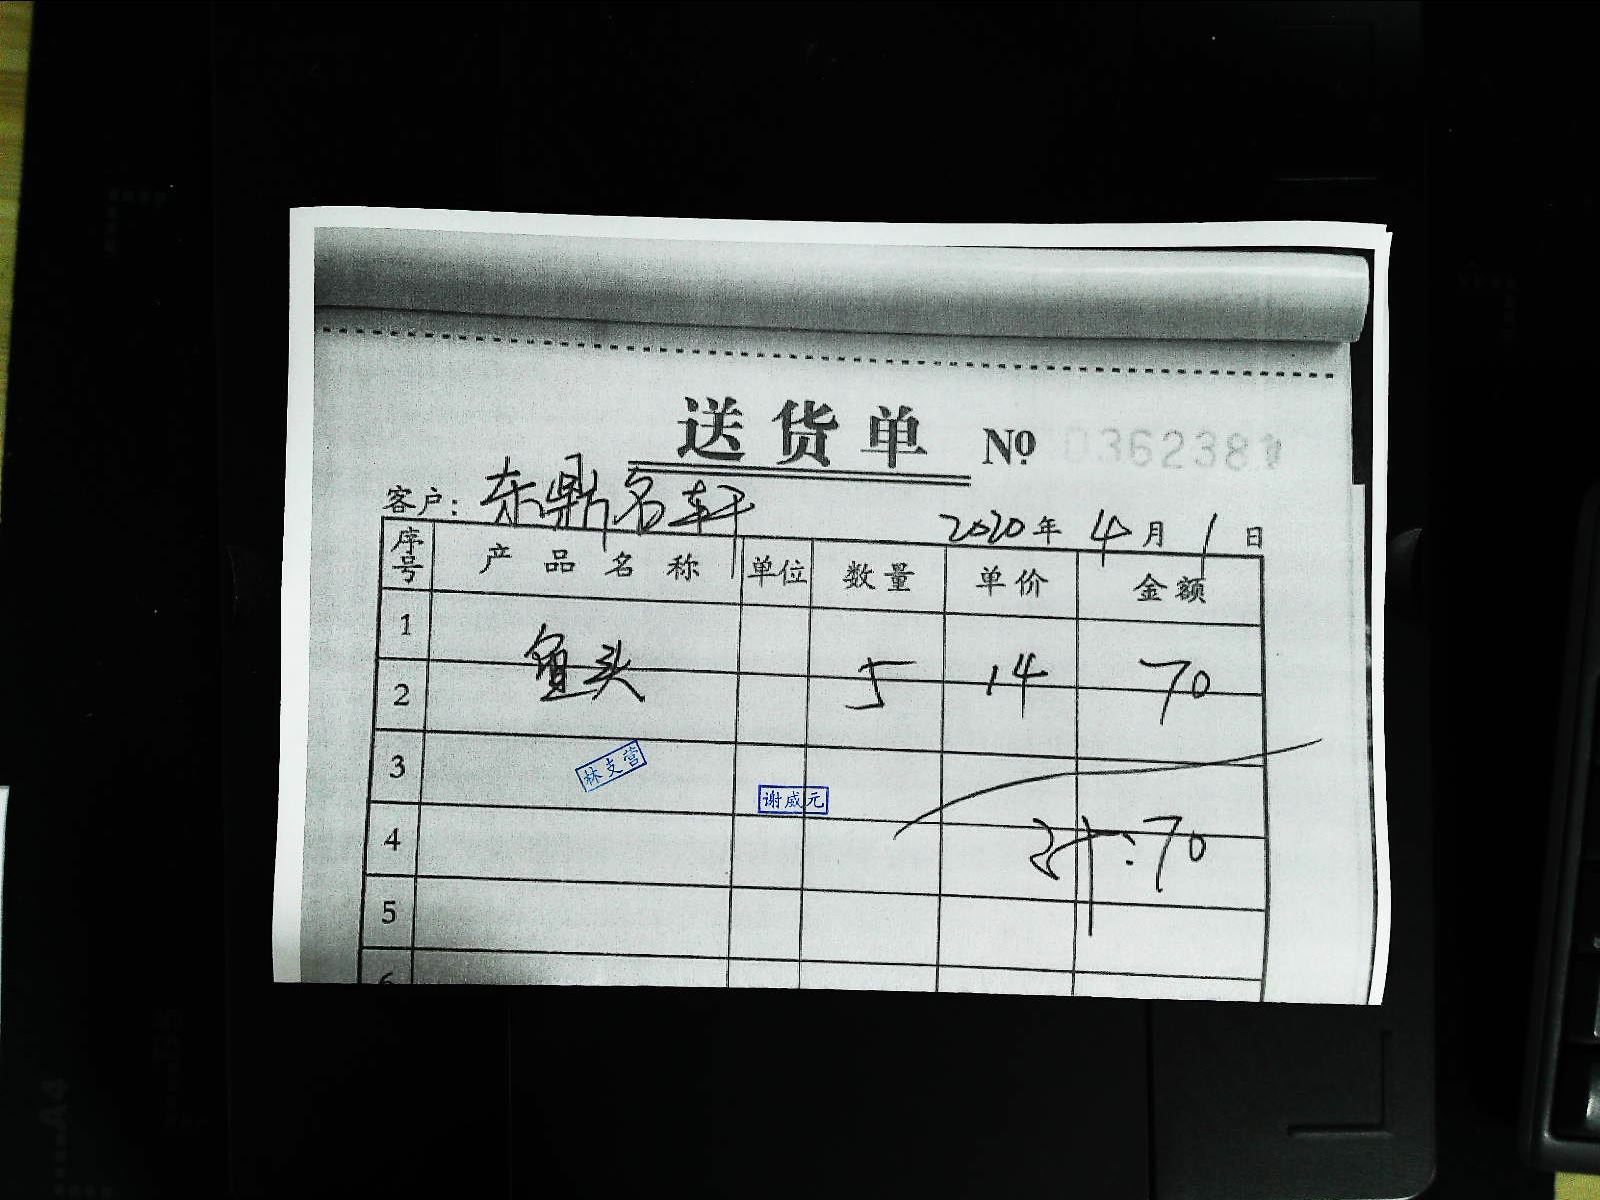 送货单 №
客户：东鼎名轩 2020年4月1日
序号 产品名称 单位 数量 单价 金额
1
鱼头 5 14 70
2
3
林支营
谢威元
4
计：70
5
6